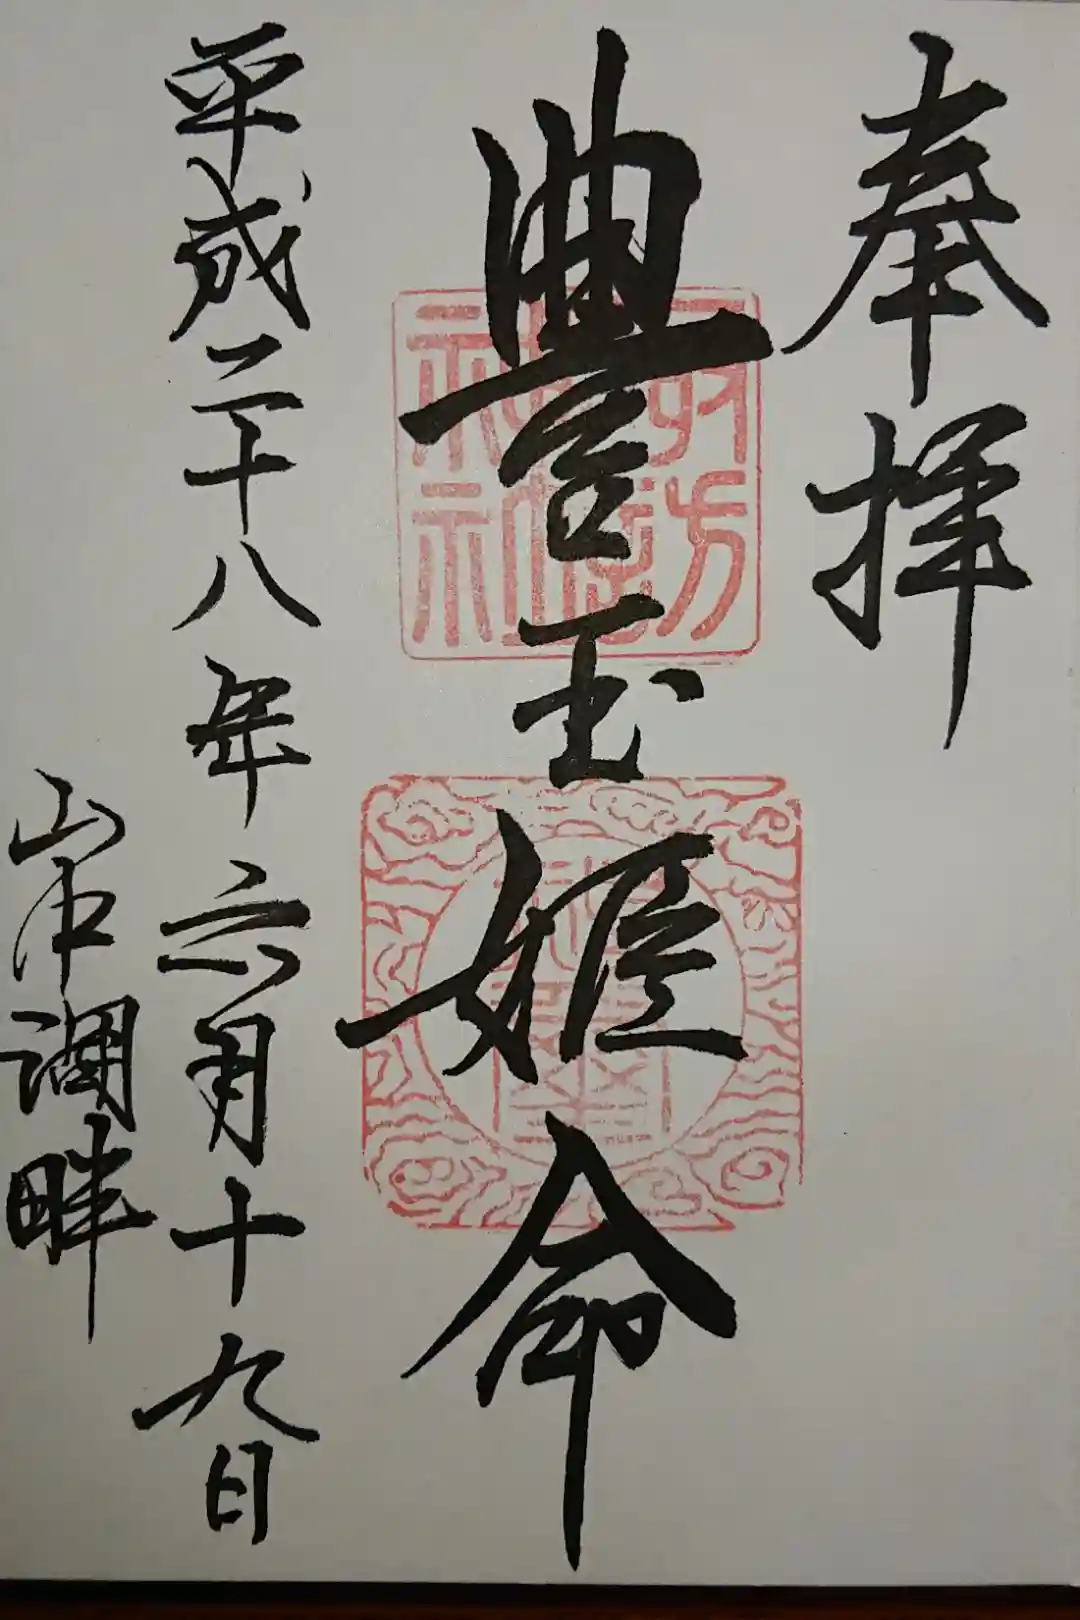 奉拝
豊玉姫命
平成二十八年六月十九日
山中湖畔